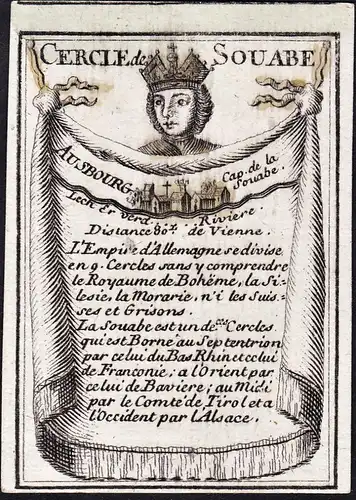 CERCLE de SOUABE
AUSBOURG Cap. de la
Souabe.
Lech et Verd. Riviere.
Distance 80 de Vienne.
L'Empire d'Allemagne se divise
en 9. Cercles sans y comprendre
le Royaume de Bohême, la Si-
lesie, la Morarie, n'i les Suis-
ses et Grisons.
La Souabe est un de ces Cercles
qui est Borné au Septentrion
par celui du Bas Rhin et celui
de Franconie; a l'Orient par
celui de Baviere; au Midi
par le Comté de Tirol et a
l'Occident par l'Alsace.